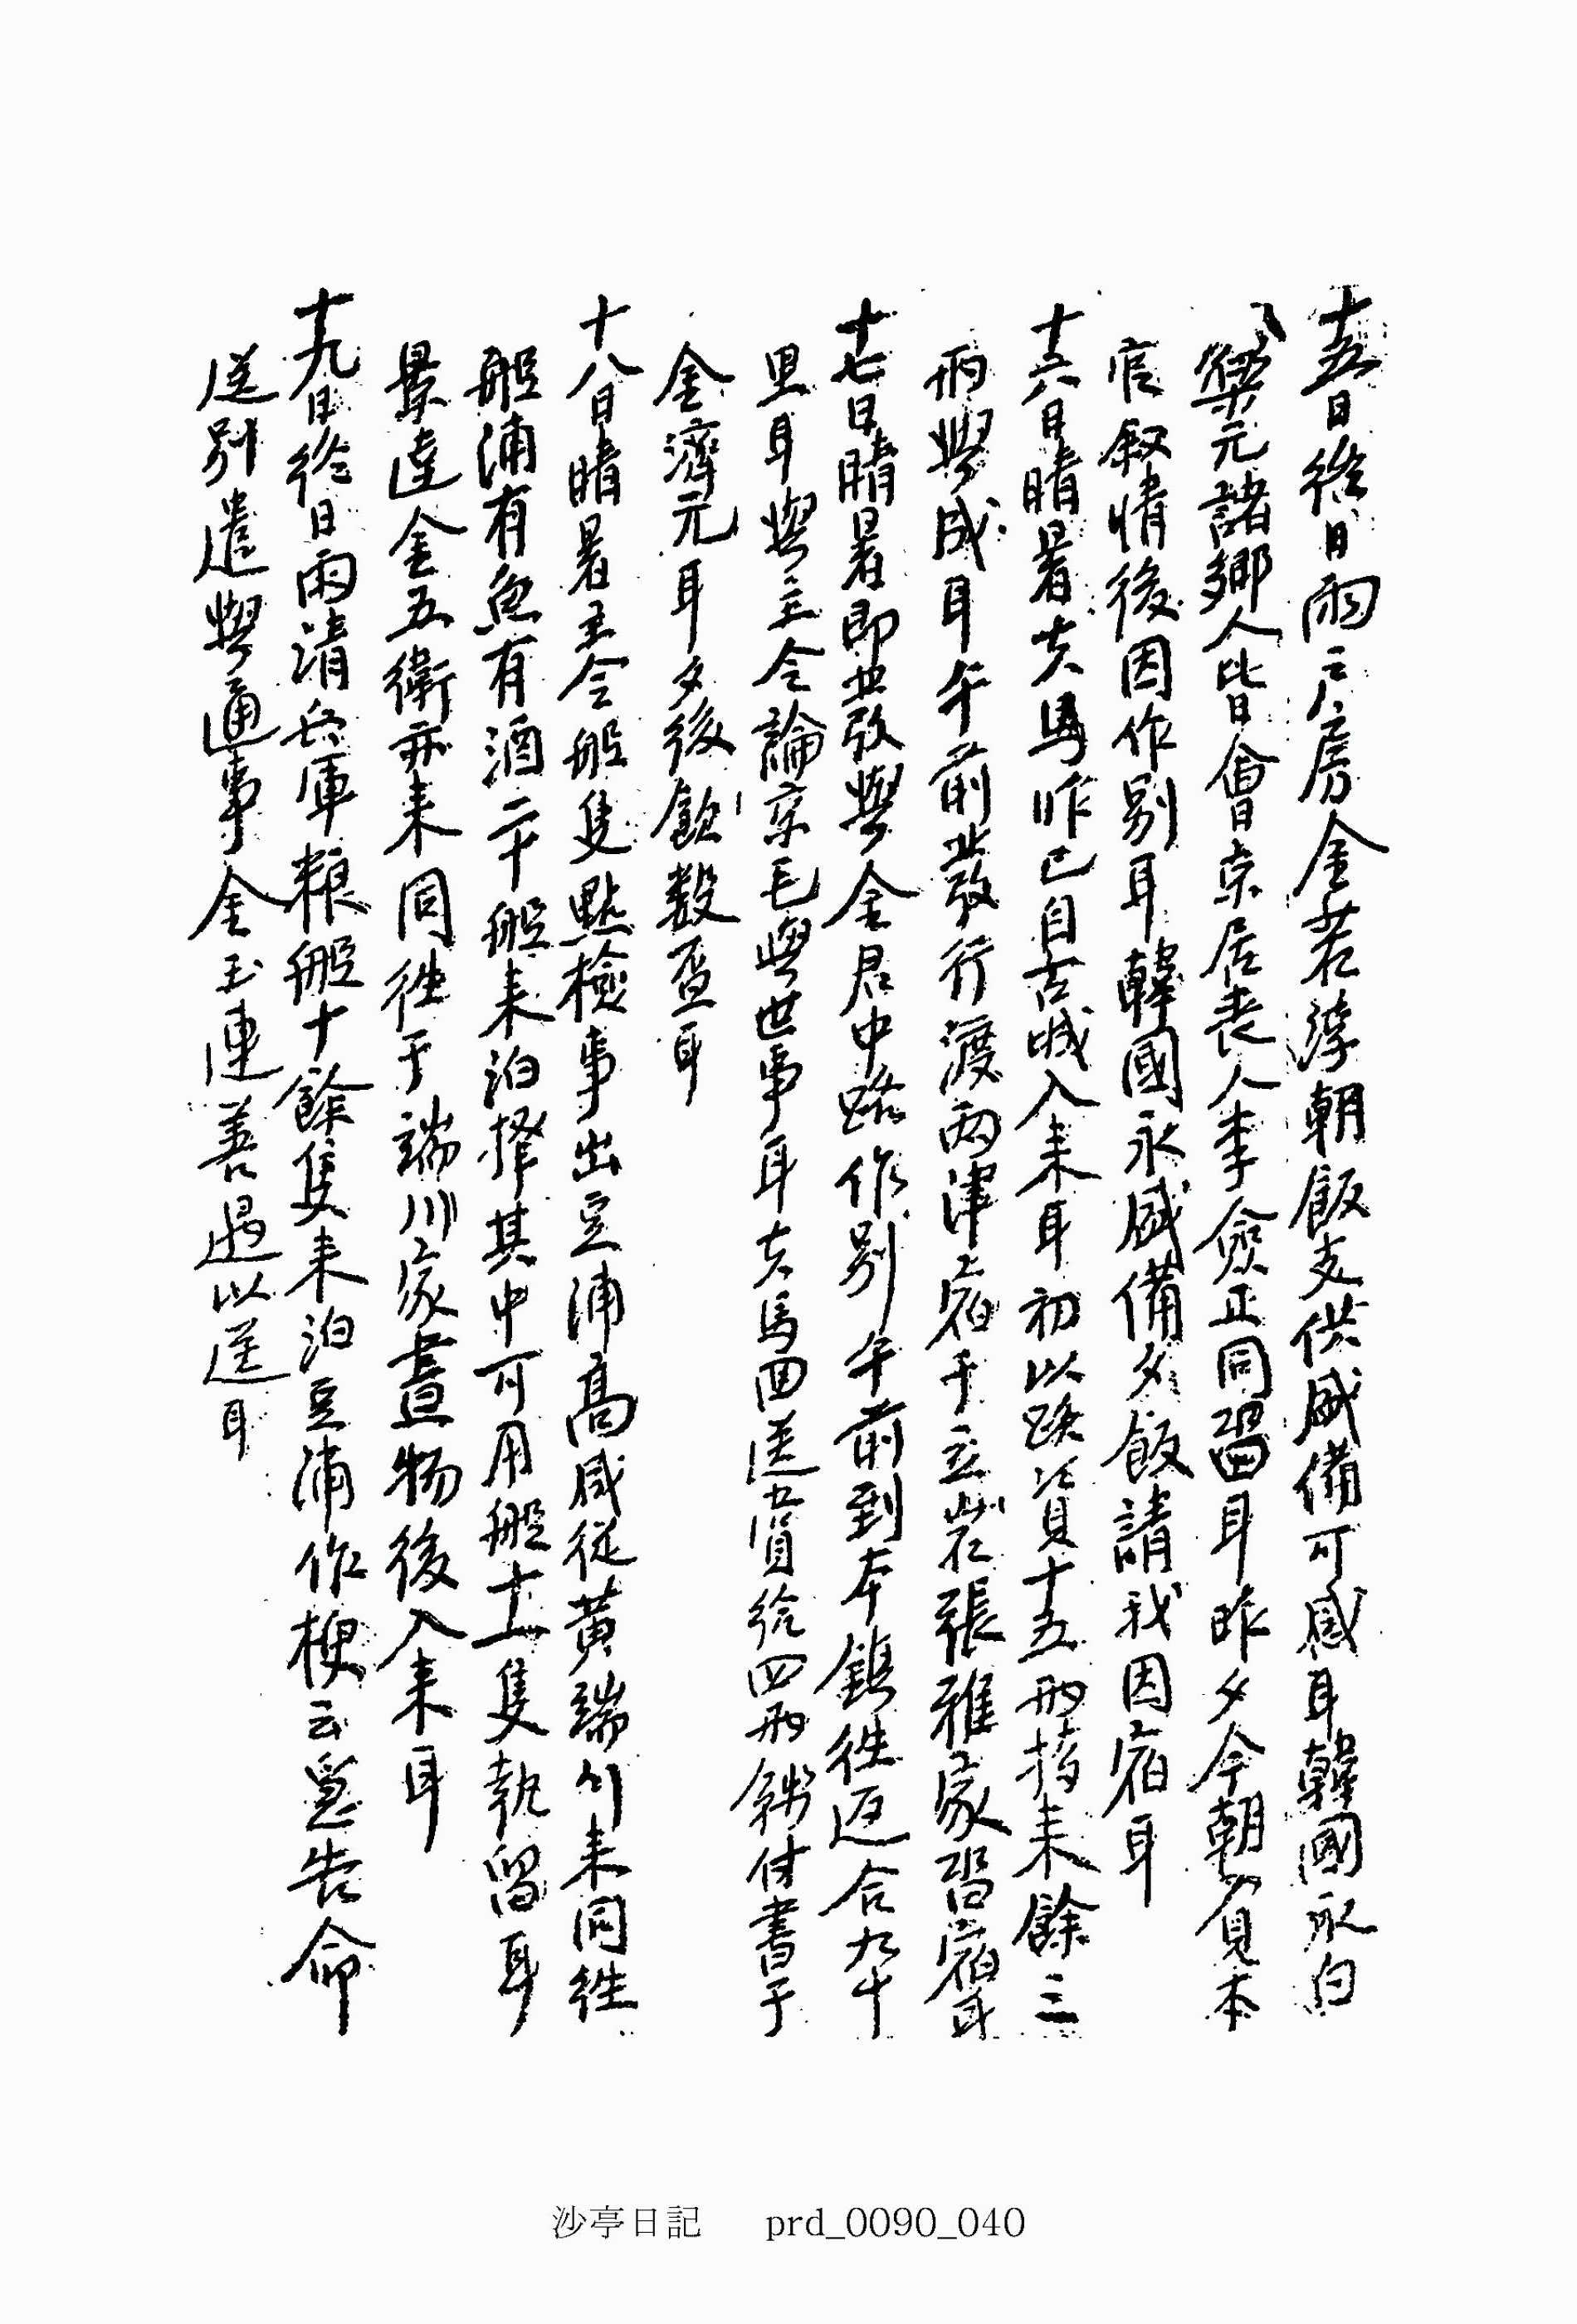 十五日終日雨戶房金若淳朝飯支供盛備可感耳韓國永白
樂元諸鄉人皆會京居喪人李僉正同留耳昨夕今朝見本
官叙情後因作別耳韓國永盛備夕飯請我因宿耳
十六日晴暑夫馬昨已自古城入來耳初以路資十五兩持來餘三
兩與成耳午前發行渡兩津宿于立岩張雅家留宿耳
十七日晴暑即發與金君中路作別午前到本鎭往返合九十
里耳與主令論京毛與世事耳夫馬回送賞給四兩錢付書于
金濟元耳夕後飮數盃耳
十八日晴暑主令船隻點檢事出豆浦高咸從黃端川來同往
船浦有魚有酒二千船來泊擇其中可用船十一隻執留耳
景達金五衛亦來同往于端川家晝物後入來耳
十九日終日雨淸兵軍粮船十餘隻來泊豆浦作梗云笠告命
送別遣與通事金玉連善遇以送耳
沙亭日記 prd_0090_040